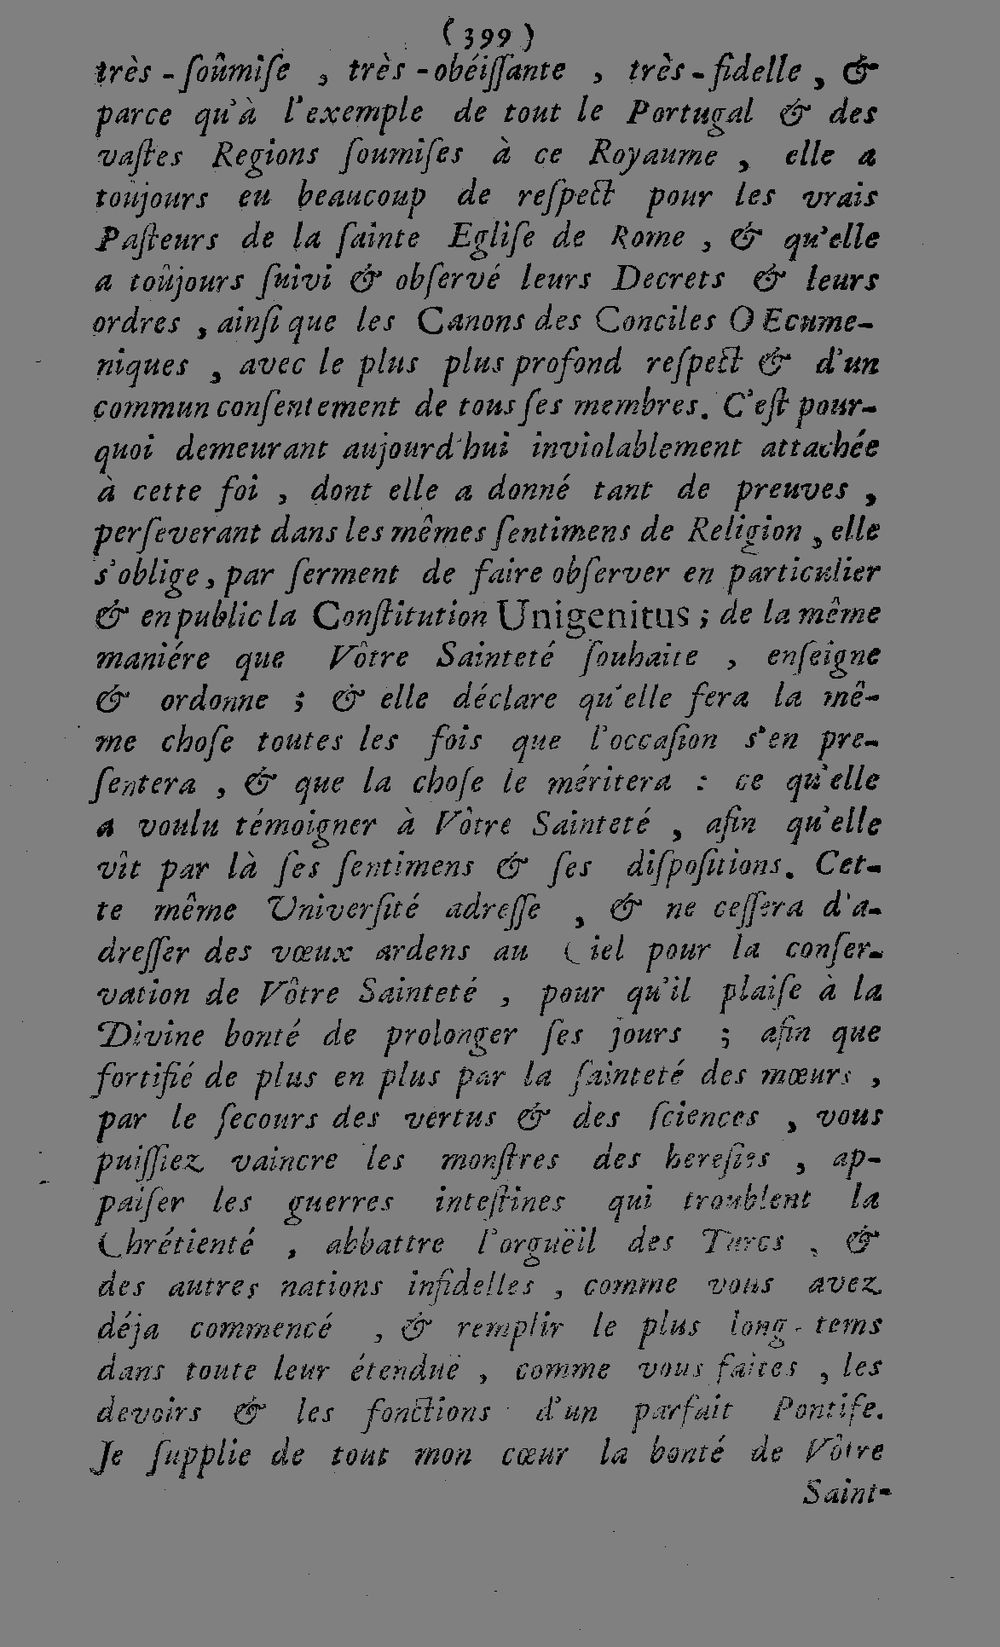 (399)
très-ſoûmiſe , très-obéiſſante , très-fidelle , &
parce qu'à l'exemple de tout le Portugal & des
vaſtes Regions ſoumiſes à ce Royaume , elle a
toûjours eu beaucoup de reſpect pour les vrais
Paſteurs de la ſainte Egliſe de Rome , & qu'elle
a toûjours ſuivi & obſervé leurs Decrets & leurs
ordres , ainſi que les Canons des Conciles OEcume-
niques , avec le plus plus profond reſpect & d'un
commun conſentement de tous ſes membres. C'eſt pour-
quoi demeurant aujourd'hui inviolablement attachée
à cette foi , dont elle a donné tant de preuves ,
perſeverant dans les mêmes ſentimens de Religion , elle
s'oblige , par ſerment de faire obſerver en particulier
& en public la Conſtitution Unigenitus ; de la même
maniére que Vôtre Sainteté ſouhaite , enſeigne
& ordonne ; & elle déclare qu'elle fera la mê-
me choſe toutes les fois que l'occaſion s'en pre-
ſentera , & que la choſe le méritera : ce qu'elle
a voulu témoigner à Vôtre Sainteté , afin qu'elle
vît par là ſes ſentimens & ſes diſpoſitions. Cet-
te même Univerſité adreſſe , & ne ceſſera d'a-
dreſſer des vœux ardens au Ciel pour la conſer-
vation de Vôtre Sainteté , pour qu'il plaiſe à la
Divine bonté de prolonger ſes jours ; afin que
fortifié de plus en plus par la ſainteté des mœurs ,
par le ſecours des vertus & des ſciences , vous
puiſſiez vaincre les monſtres des hereſies , ap-
paiſer les guerres inteſtines qui troublent la
Chrétienté , abbattre l'orguëil des Turcs , &
des autres nations infidelles , comme vous avez
déja commencé , & remplir le plus long-tems
dans toute leur étenduë , comme vous faites , les
devoirs & les fonctions d'un parfait Pontife.
Je ſupplie de tout mon cœur la bonté de Vôtre
Saint-